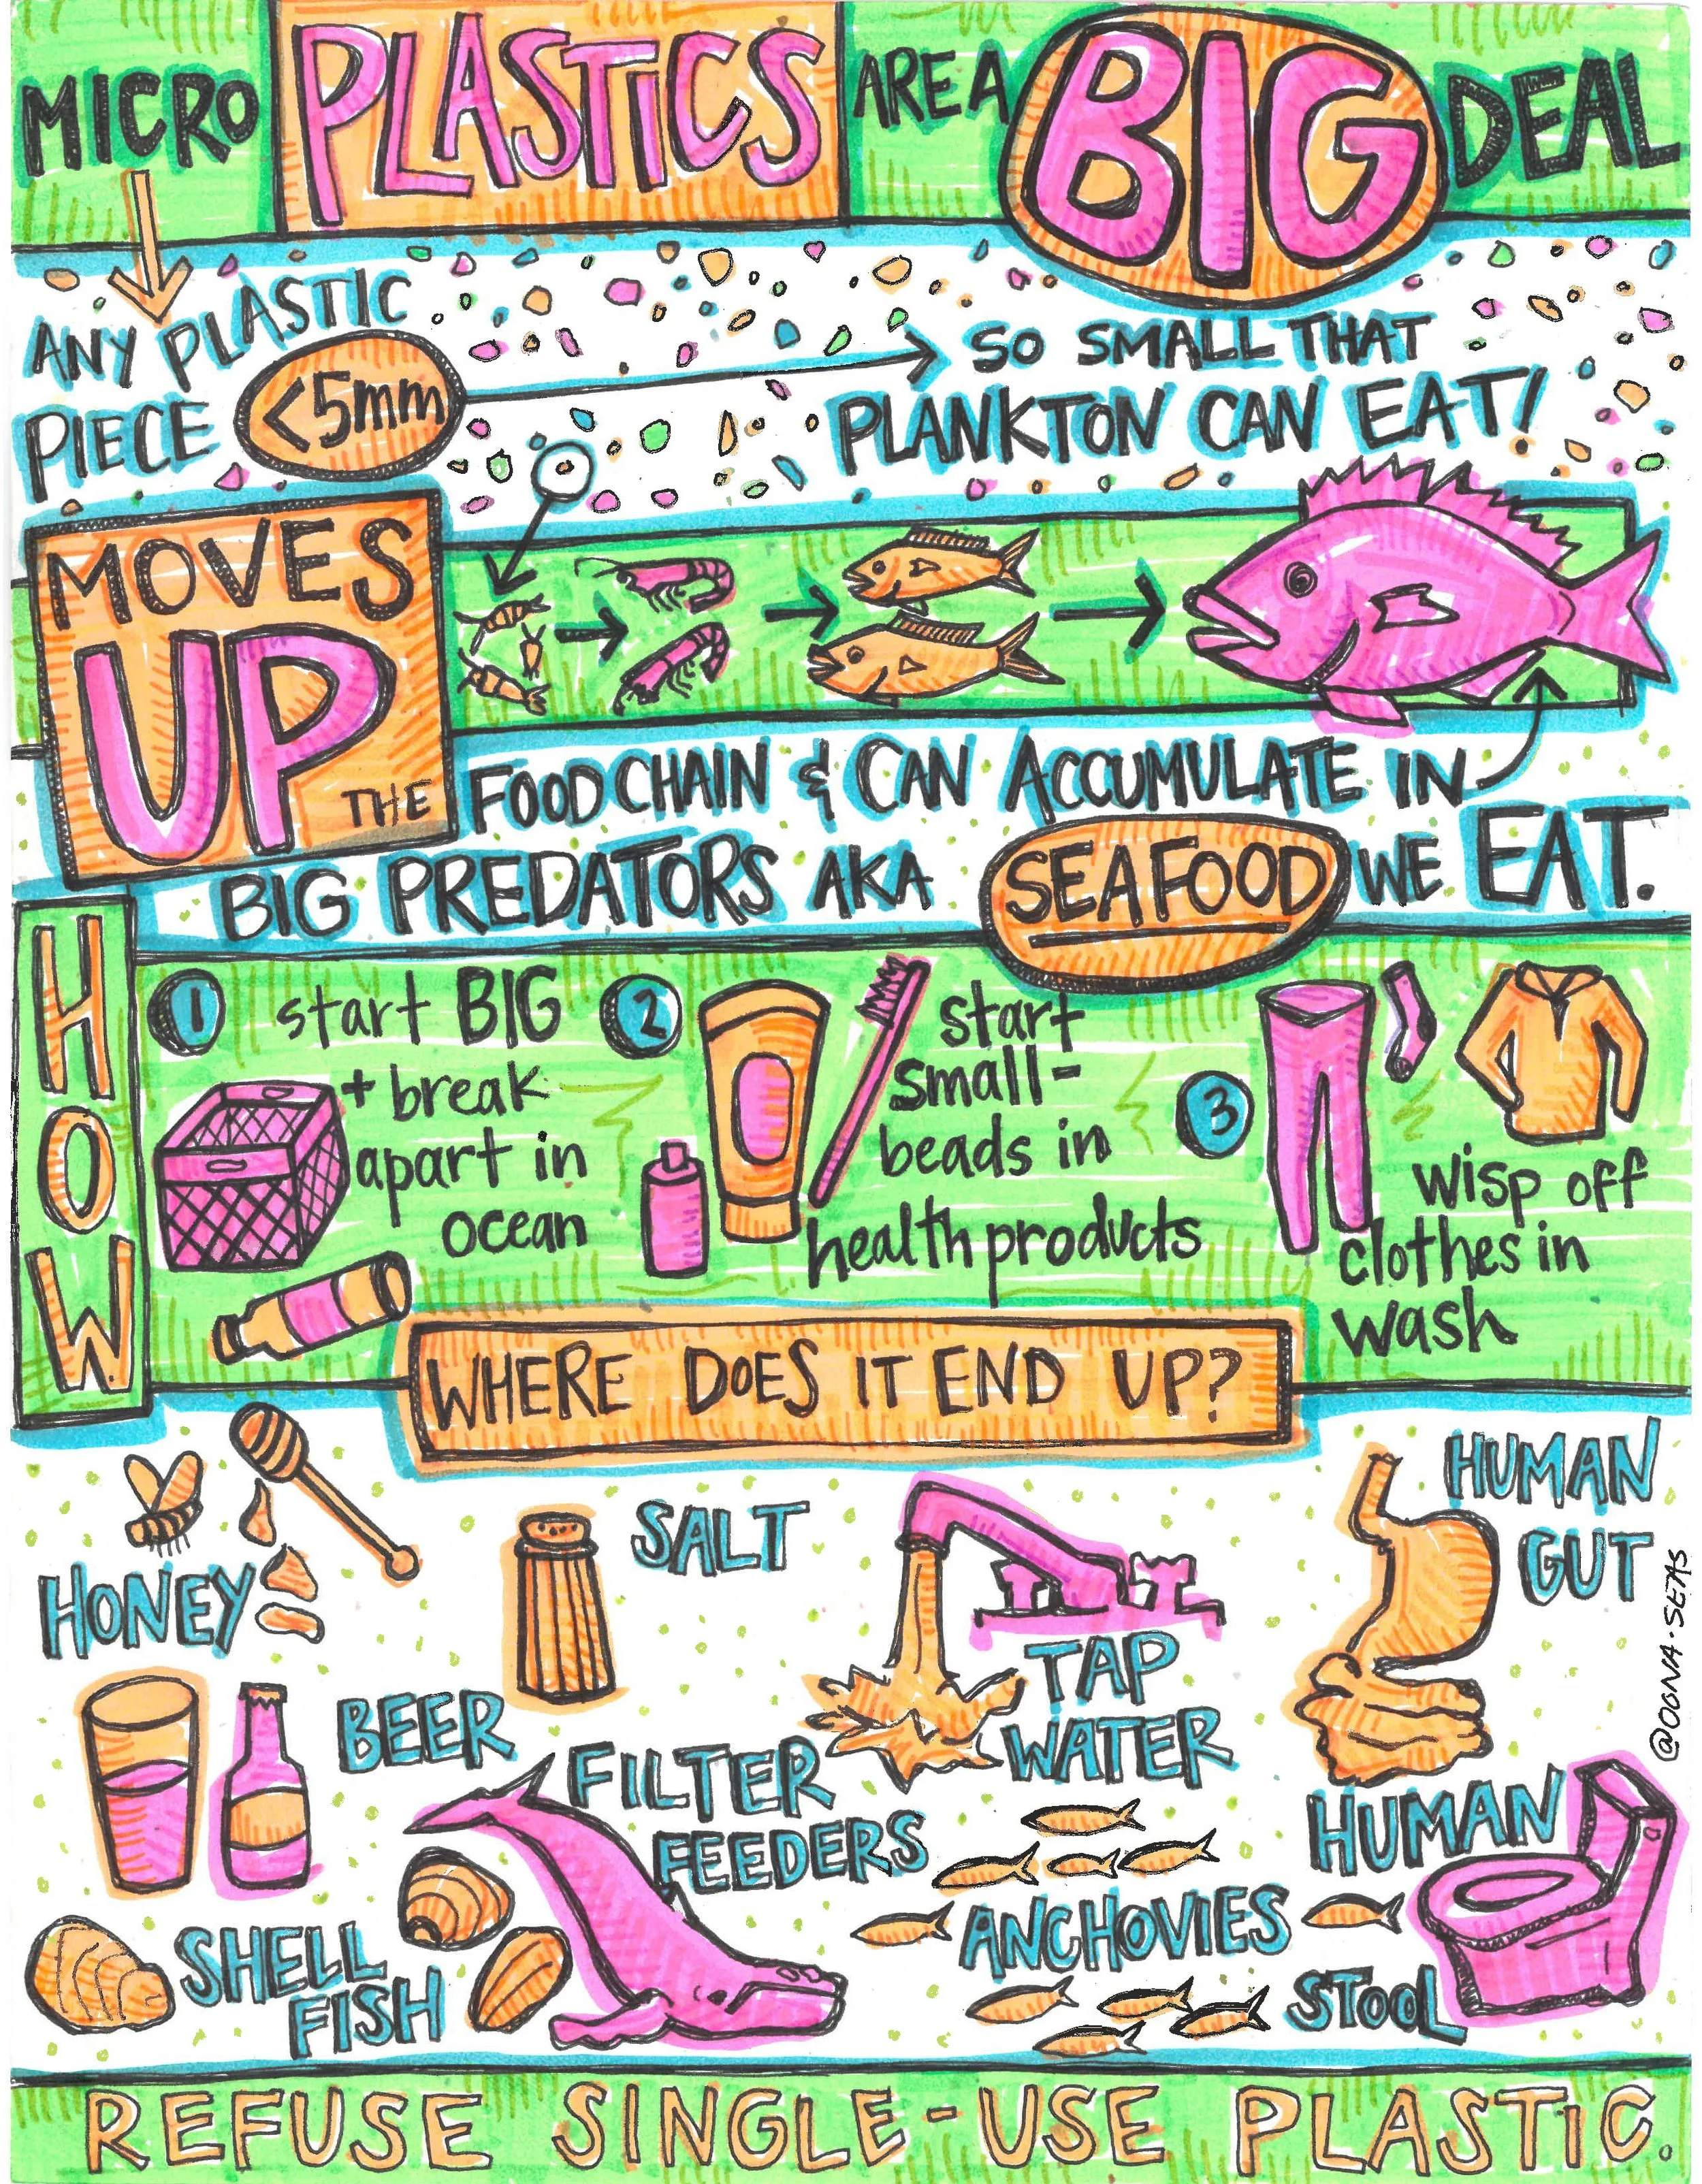 MICRO PLASTICS ARE A BIG DEAL
ANY PLASTIC
PIECE <5mm
SO SMALL THAT
PLANKTON CAN EAT!
MOVES
UP
THE FOOD CHAIN & CAN ACCUMULATE IN
BIG PREDATORS AKA SEAFOOD WE EAT.
HOW
1 start BIG
+ break
apart in
ocean
2 start
small-
beads in
health products
3 wisp off
clothes in
wash
WHERE DOES IT END UP?
HONEY
SALT
TAP
WATER
HUMAN
GUT
BEER
FILTER
FEEDERS
SHELL
FISH
ANCHOVIES
HUMAN
STOOL
@OGNA.SEAS
REFUSE SINGLE-USE PLASTIC.